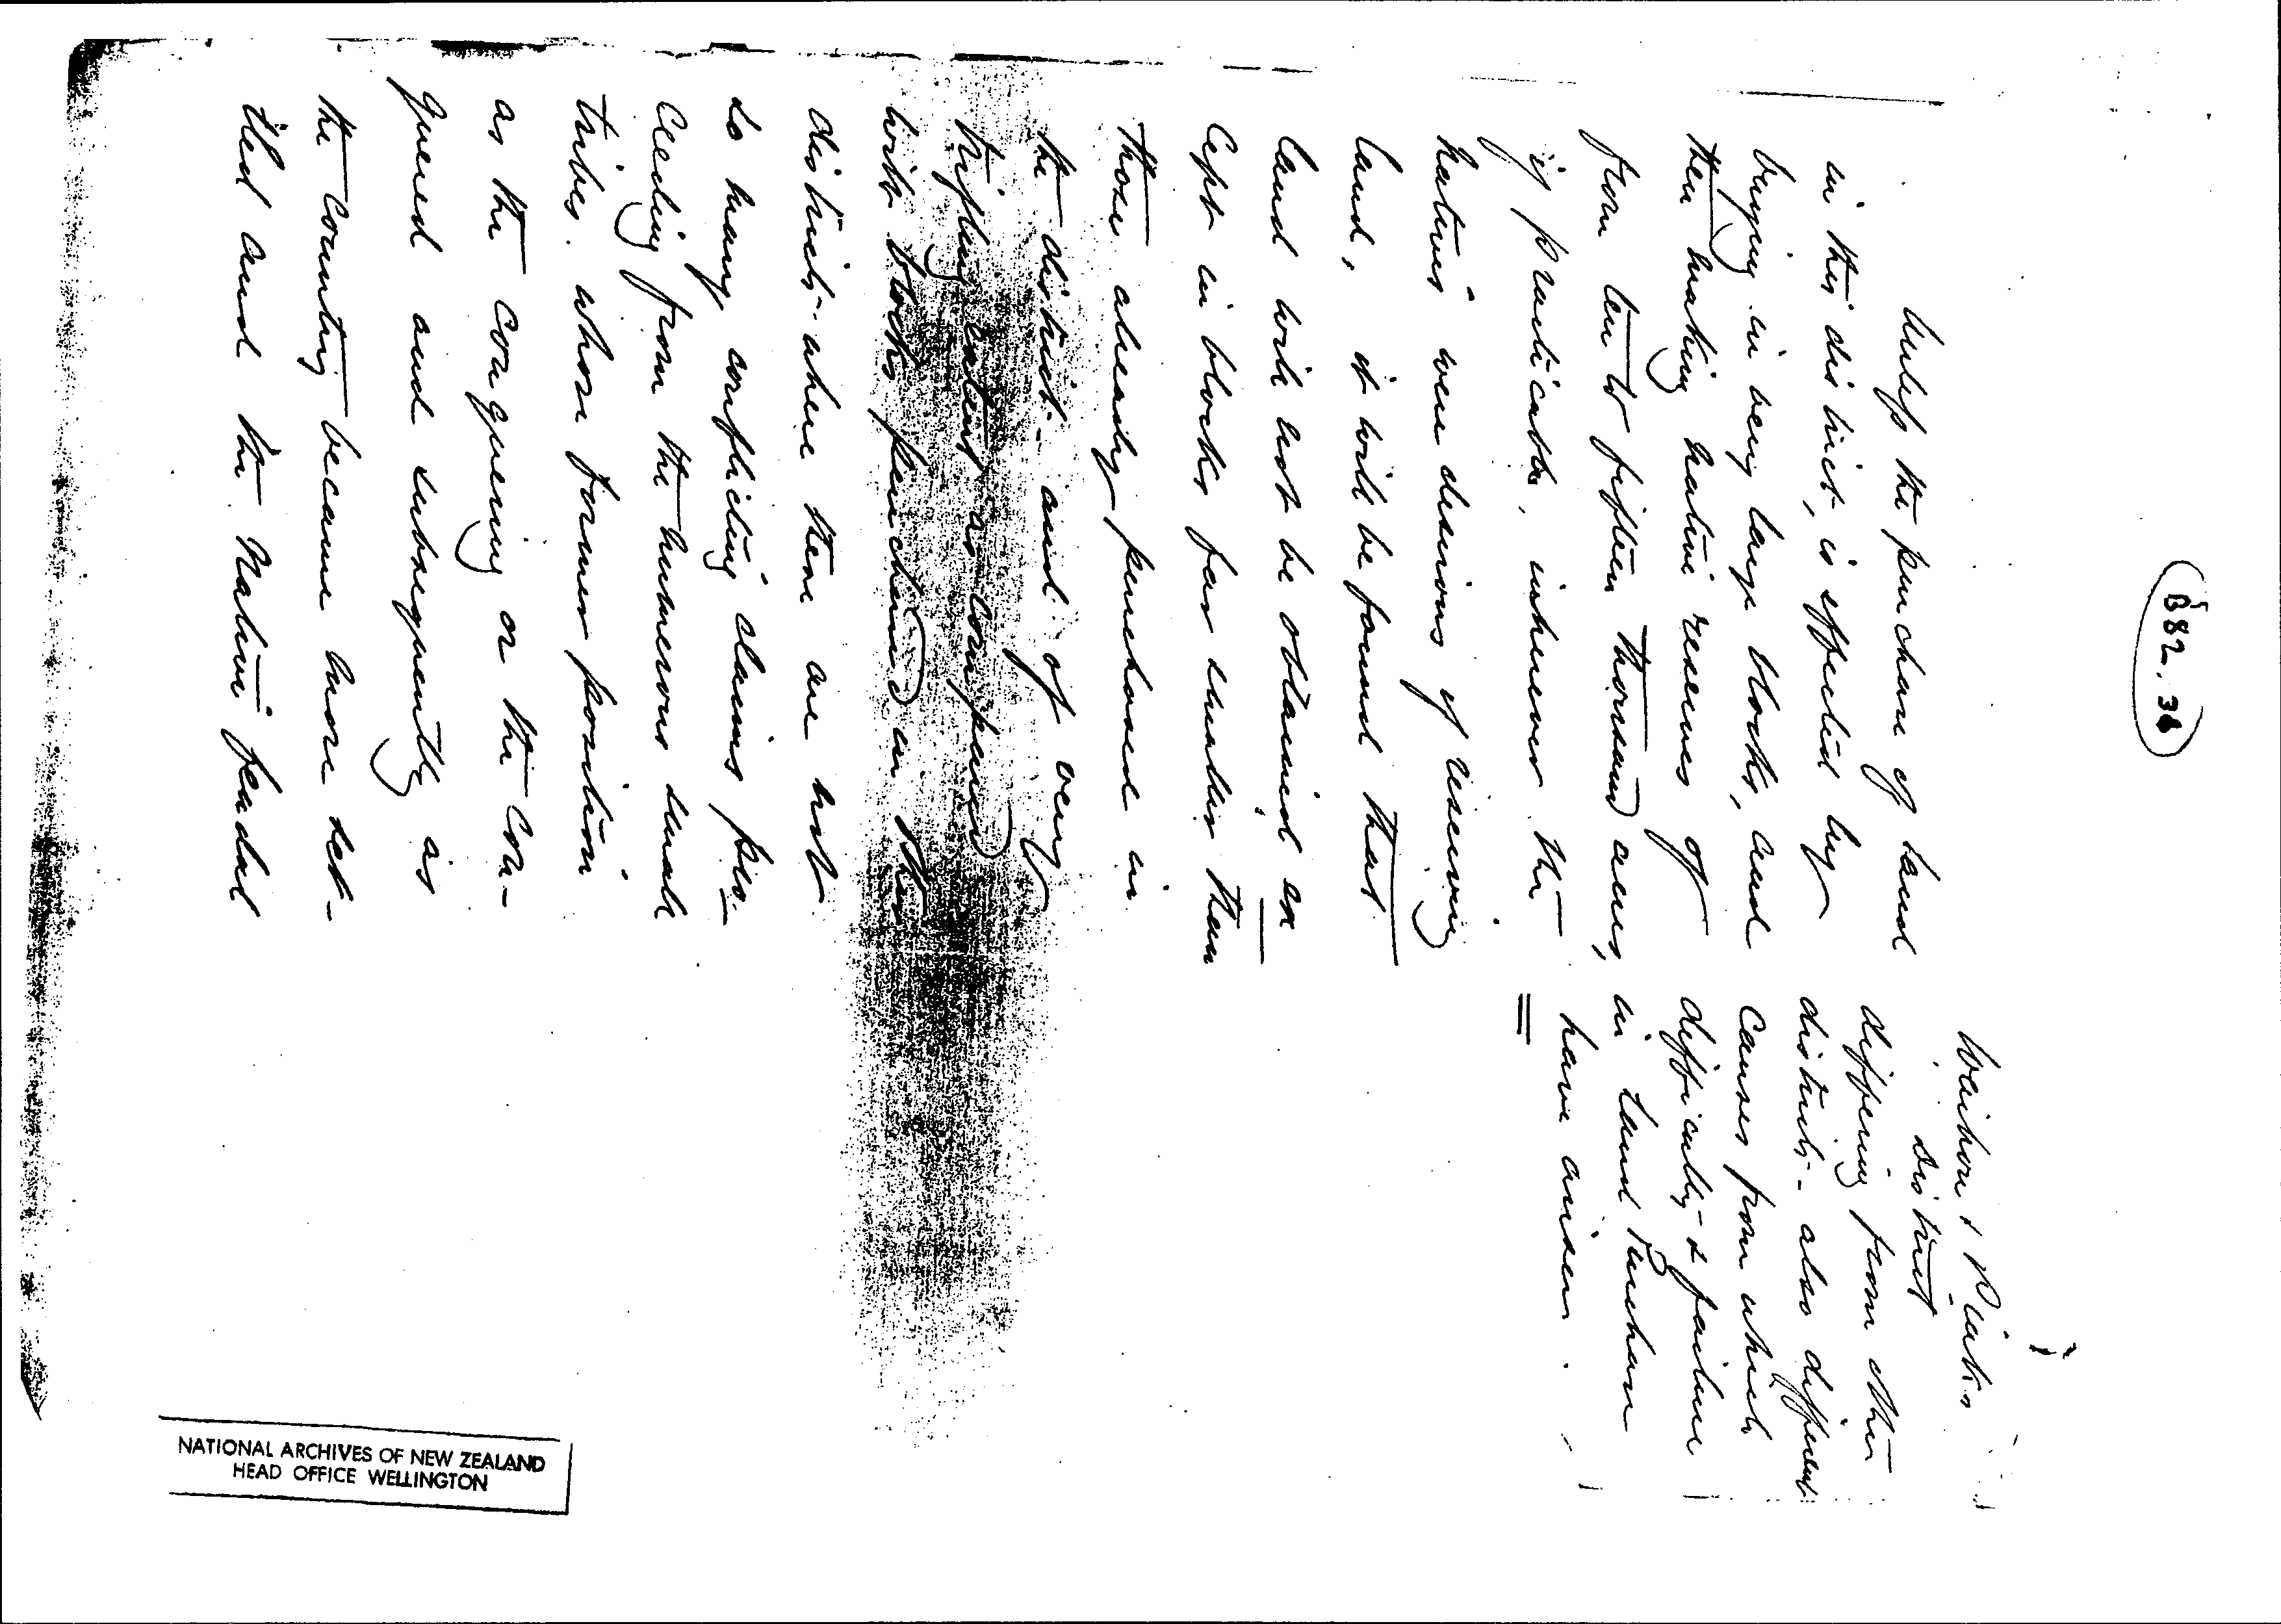 B82.38
Unless the purchase of land
in this district, is effected by
buying in very large blocks, and
then making native reserves of
from ten to fifteen thousand acres,
if practicable, wherever the
natives were desirous of reserving
land, it will be found that
land will not be obtained ex
cept in blocks far smaller than
those already purchased in
the district - and of very
trifling extent as compared
with blocks purchased in other
districts where there are not
so many conflicting claims pro-
ceeding from the numerous small
tribes, whose former position
as the conquering or the con-
quered and subsequently as
the country became more set-
tled and the Native feudal
Waihou & Piako
district
differing from other
districts - also different
causes from which
difficulty & failure
in land Purchase
have arisen.
NATIONAL ARCHIVES OF NEW ZEALAND
HEAD OFFICE WELLINGTON